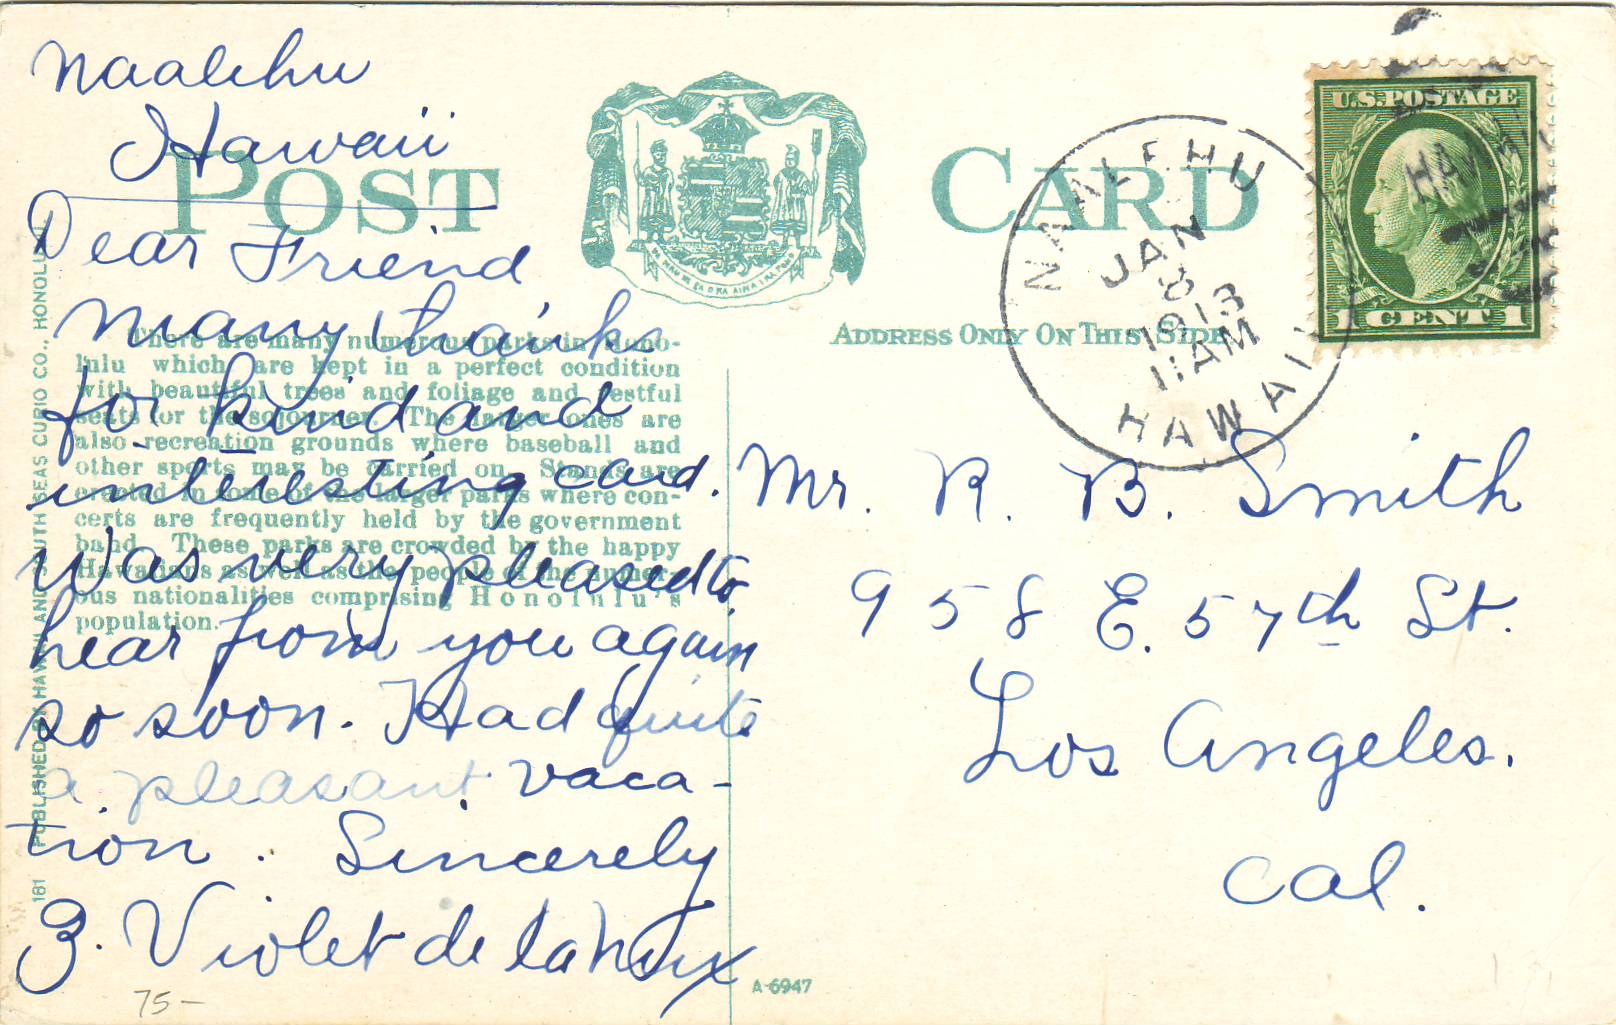 Naalehu
Hawaii
POST CARD
Dear Friend
Many thanks
for kind and
interesting card.
Was very pleased to
hear from you again
so soon. Had quite
a pleasant vaca-
tion. Sincerely
Violet de la
75-
There are many numerous parks in Hono-
lulu which are kept in a perfect condition
with beautiful trees and foliage and restful
seats for the sojourner. The larger ones are
also recreation grounds where baseball and
other sports may be carried on. Stands are
erected in some of the larger parks where con-
certs are frequently held by the government
band. These parks are crowded by the happy
Hawaiians as well as the people of the numer-
ous nationalities comprising Honolulu's
population.
181 PUBLISHED BY HAWAII AND SOUTH SEAS CURIO CO., HONOLULU
ADDRESS ONLY ON THIS SIDE
NAALEHU
JAN
8
1913
11 AM
HAWAII
U.S. POSTAGE
1 CENT 1
Mr. R. B. Smith
958 E. 57th St.
Los Angeles.
Cal.
A-6947